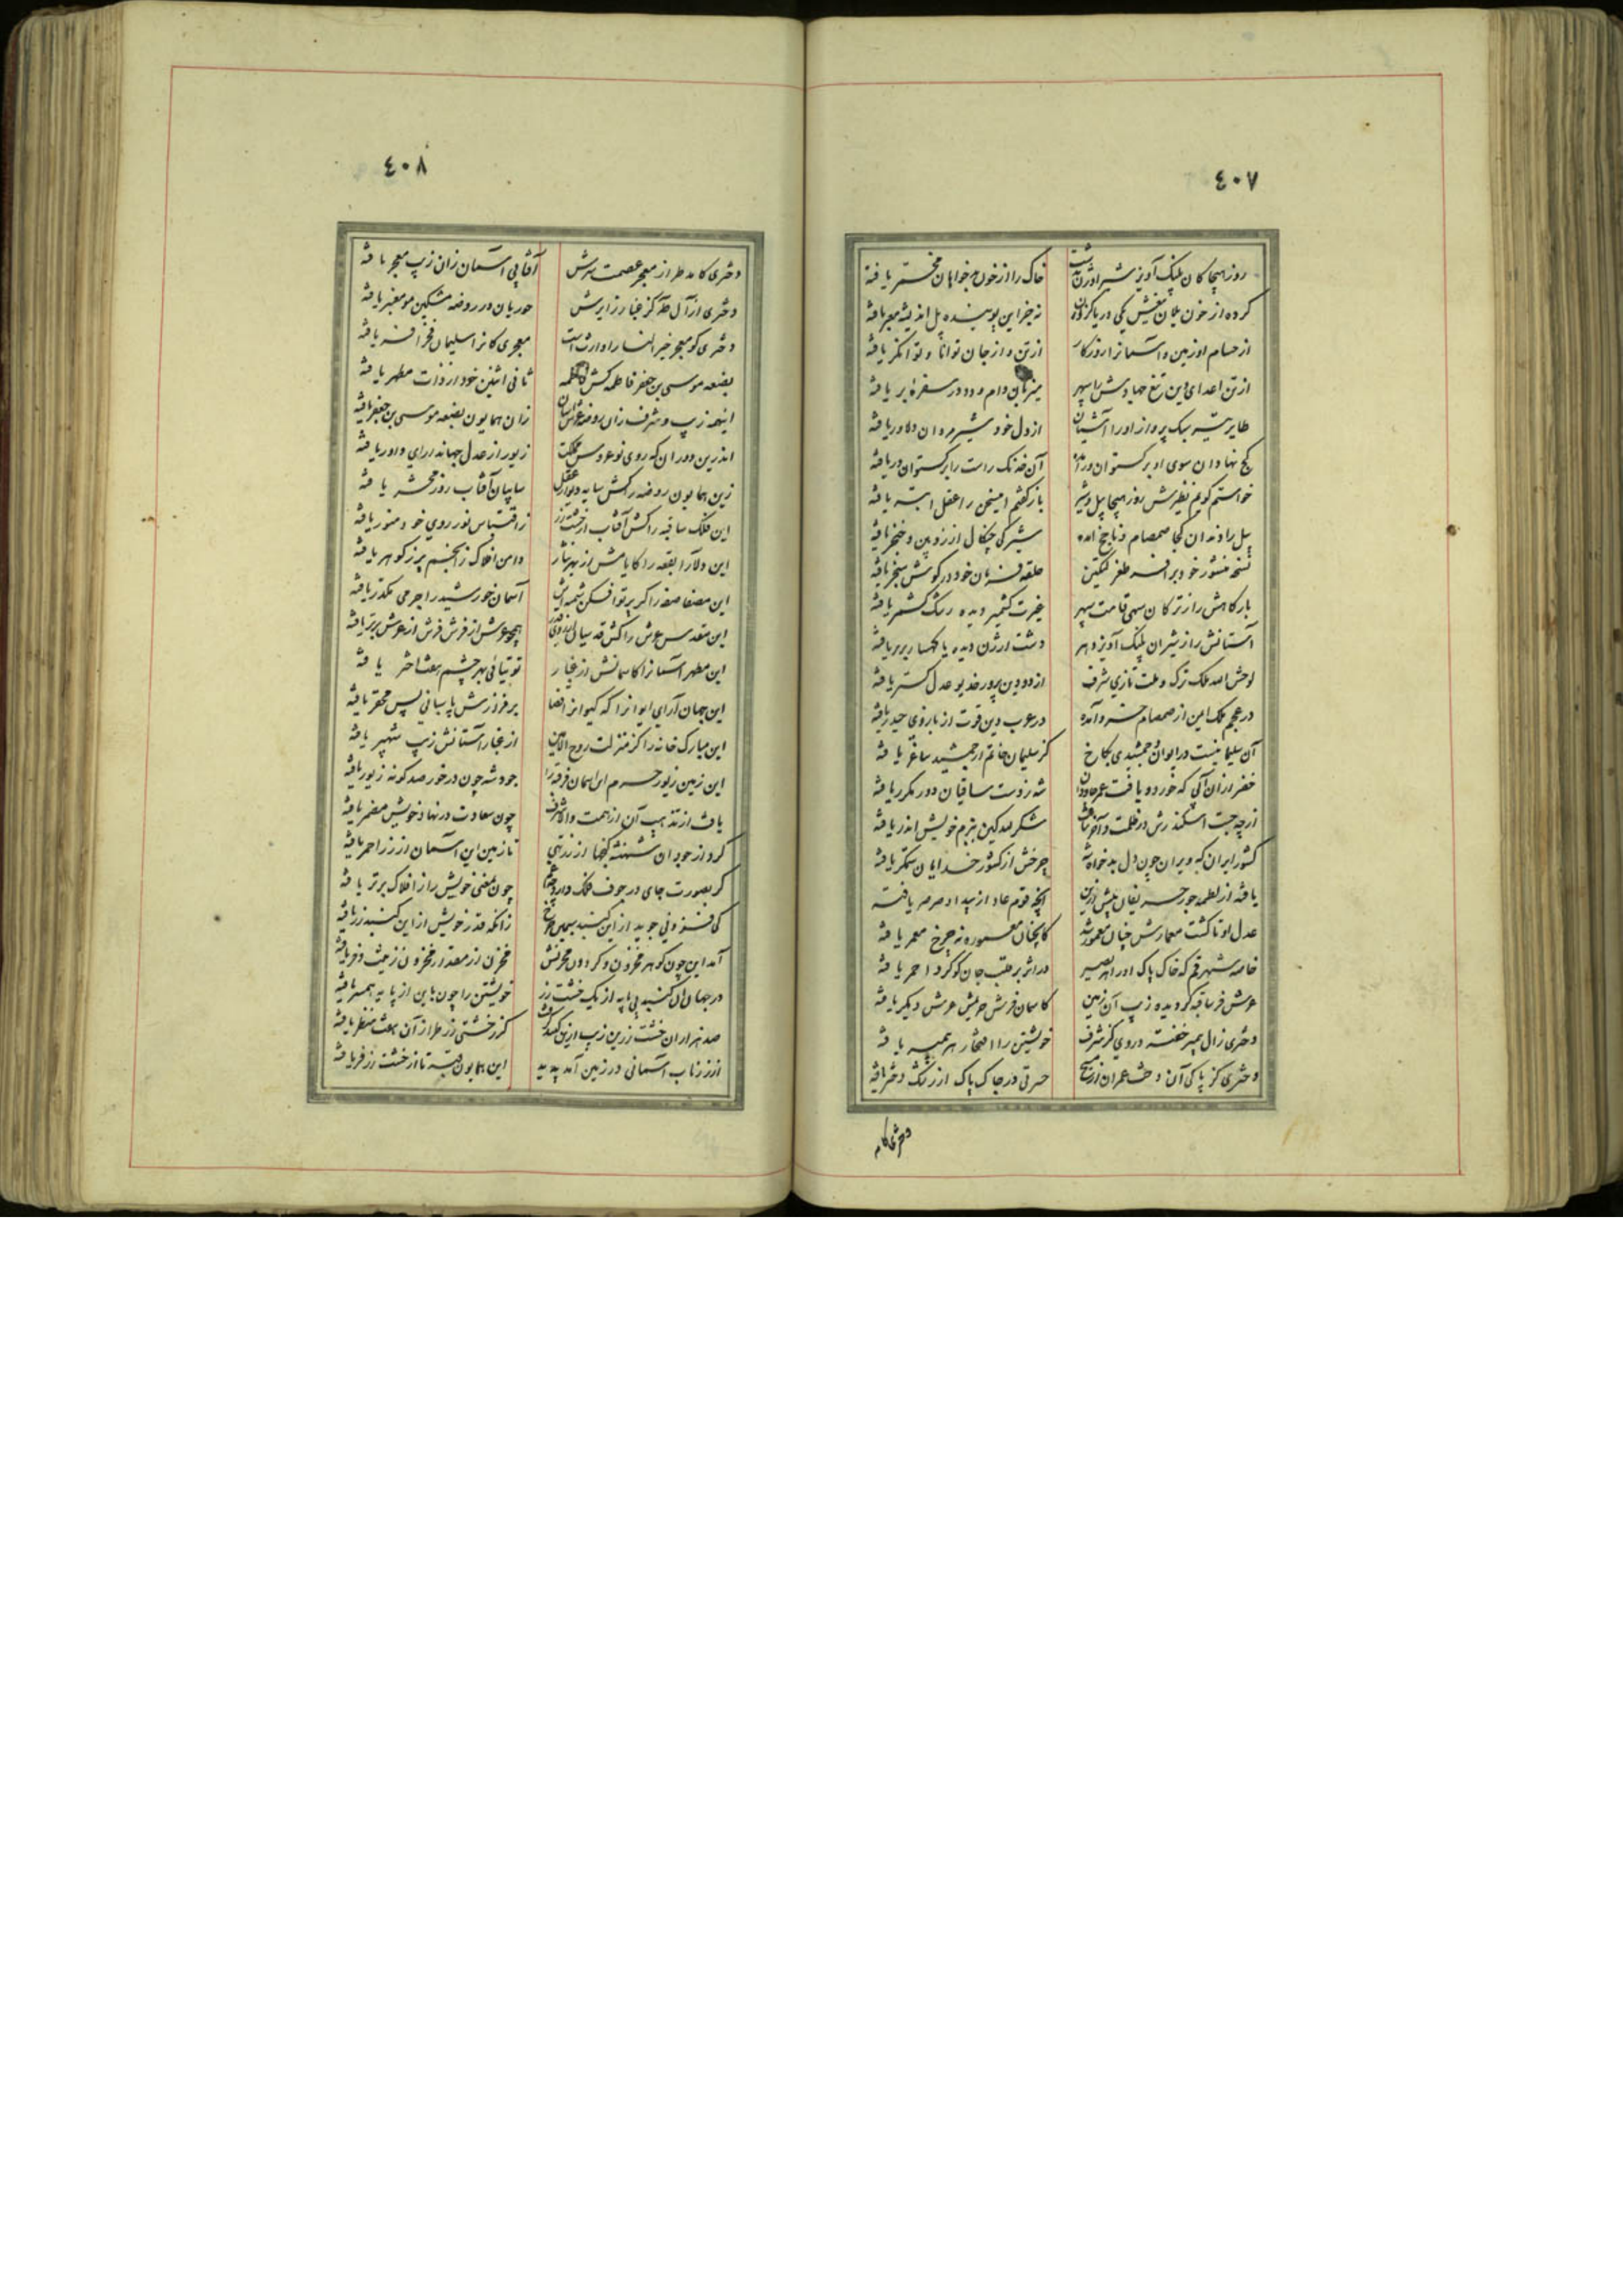 ٤٠٧
روز هیجا کان پلنگ آویز شیر اوژن بدشت
خاک را از خون بدخواهان مخمّر یافته
کرده از خون یلان
از حسام او زمین و آسمانرا روزگار
از تن و از جان توانا و توانگر یافته
از تن اعدای دین تیغ جهادش را سپهر
میزبان دام و دد در سفره بر یافته
طایر تیر سبک پرواز او را آشیان
از دل خود شیر مردان دلاور یافته
کج نهادان سوی او برگستوان در آمده
آن خدنگ راست را برگستوان در یافته
خواستم گویم نظیرش روز هیجا پیل و شیر
باز گفتم این سخن را عقل ابتر یافته
پیل را دندان کجا صمصام و ناچخ آمده
شیر کی چنگال از زوبین و خنجر یافته
نسخه منشور خود بر افسر طغرل تکین
حلقه فرمان خود در گوش سنجر یافته
بارگاهش را ز ترکان سهی قامت سپهر
غیرت کشمیر دیده رشک کشمر یافته
آستانش را ز شیران پلنگ آویز دهر
دشت ارژن دیده یا کهسار بربر یافته
لوحش الله ملک ترک و ملت تازی شرف
از دو دین پرور خدیو عدل گستر یافته
در عجم ملک امن از صمصام خسرو آمده
در عرب دین قوت از بازوی حیدر یافته
آن سلیمانیست در ایوان جمشیدی بکاخ
کز سلیمان خاتم از جمشید ساغر یافته
خضر از آن آبی که خورد و یافت عمر جاودان
شه ز دست ساقیان دور مکرر یافته
از چه جست اسکندرش در ظلمت و آخر نیافت
شکر لله کین ببزم خویش اندر یافته
کشور ایران که ویران چون دل بدخواه شه
چرخش از کشور خدایان ستمگر یافته
یافته از لطمه جور حریفان پیش ازین
آنچه قوم عاد از بیداد صرصر یافته
عدل او تا گشت معمارش چنان معمور شد
کانچنان معموره نه چرخ معمر یافته
خاصه شهر قم که خاک پاک او را هر بصیر
در اثر بر قلب جان گوگرد احمر یافته
عرش فرسا قبه گردیده زیب آن زمین
کاسمان فرش حریمش عرش دیگر یافته
دختری ز آل پیمبر خفته در وی کز شرف
خویشتن را افتخار هر پیمبر یافته
دختری کز پاکی آن دخت عمران از مسیح
حسرتی در خاک پاک از رشک دختر یافته
دختری کامد
٤٠٨
دختری کامد طراز معجر عصمت سرش
آفتابی آسمان زان زیب معجر یافته
دختری از آل طه کز غبار زایرش
حوریان در روضه مشکین مو معنبر یافته
دختری کو معجر خیر النسا را وارث است
معجری کانرا سلیمان فخر افسر یافته
بضعه موسی بن جعفر فاطمه کش فاطمه
ثانی اثنین خود از ذات مطهر یافته
اینهمه زیب و شرف زان روضه عرش آستان
زان همایون بضعه موسی بن جعفر یافته
اندرین دوران که روی نوعروس مملکت
زیور از عدل جهاندارای داور یافته
زین همایون روضه کش سایه دیوار عقل
سایبان آفتاب روز محشر یافته
این فلک سا قبه را کش آفتاب از خشت زر
ز اقتباس نور روی خود منور یافته
این دلآرا بقعه را کایامش از بهر نثار
دامن افلاک ز انجم پر ز گوهر یافته
این مصفا صفه را کز پرتو افکن شمسه اش
آسمان خورشید را جرمی مکدر یافته
این مقدس عرش را کش قدسیان
همچو عرش از فرش فرش از عرش برتر یافته
این مطهر آستانرا کاسمانش از غبار
توتیائی بهر چشم هفت اختر یافته
این جهان آرای ایوانرا که کیوانرا قضا
بر فراز برش پاسبانی بس محقر یافته
این مبارک خانه را کز منزلت روح الامین
از غبار آستانش زیب شهپر یافته
این زمین زیور حرم این آسمان فر قبه را
جود شه چون در خور صد گونه زیور یافته
یافت از تذهیب آن از همت والا شرف
چون سعادت در نهاد خویش مضمر یافته
کرد از جود آن شهنشه گنجها از زر تهی
تا زمین این آسمان از زر احمر یافته
گر بصورت جای در جوف فلک دارد
چون بمعنی خویش را ز افلاک برتر یافته
کی فزونی جوید از این گنبد سیمین چرخ
زانکه قدر خویش از این گنبد زر یافته
آمد این چون گوهر مخزون و گردون مخزنش
مخزن از مقدار مخزون زینت و فر یافته
در جهان آن گنبد بی پایه از یک خشت زر
خویشتن را چون باین از پایه همسر یافته
صد هزاران خشت زرین زیب این گنبد که گشت
کز خشتی زر طراز آن هفت منظر یافته
از زر ناب آسمانی در زمین آمد پدید
این همایون قبه تا از خشت زر فر یافته